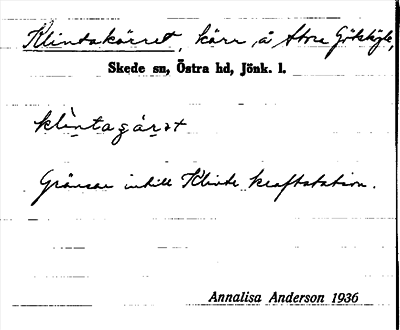 Klintakärret, kärr, å Stora Gökhylt,
Skede sn, Östra hd, Jönk. l.
klìntaçárət
Gränsar intill Klinte kraftstation.
Annalisa Anderson 1936